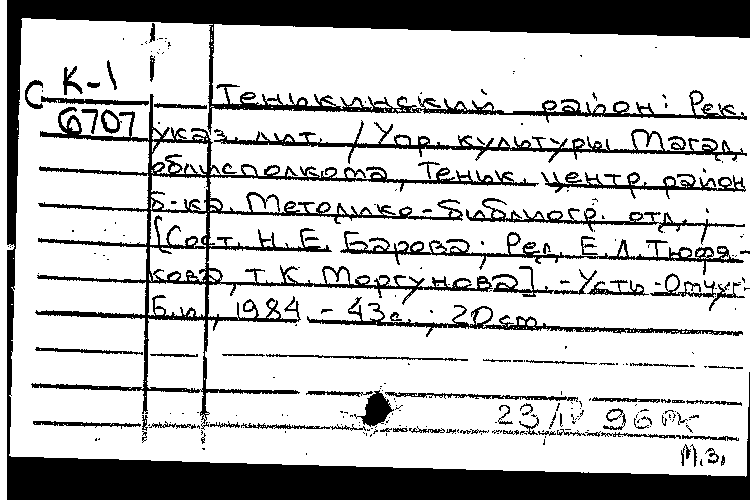 С К-1
6707
Тенькинский район: Рек.
указ. лит. / Упр. культуры Магад.
облисполкома, Теньк. центр. район
б-ка. Методико-библиогр. отд.;
[Сост. Н. Е. Барова; Ред. Е. Л. Тюфя-
кова, Т. К. Моргунова]. - Усть-Омчуг:
Б.и., 1984. - 43с.; 20см.
23/IV 96
М.З.